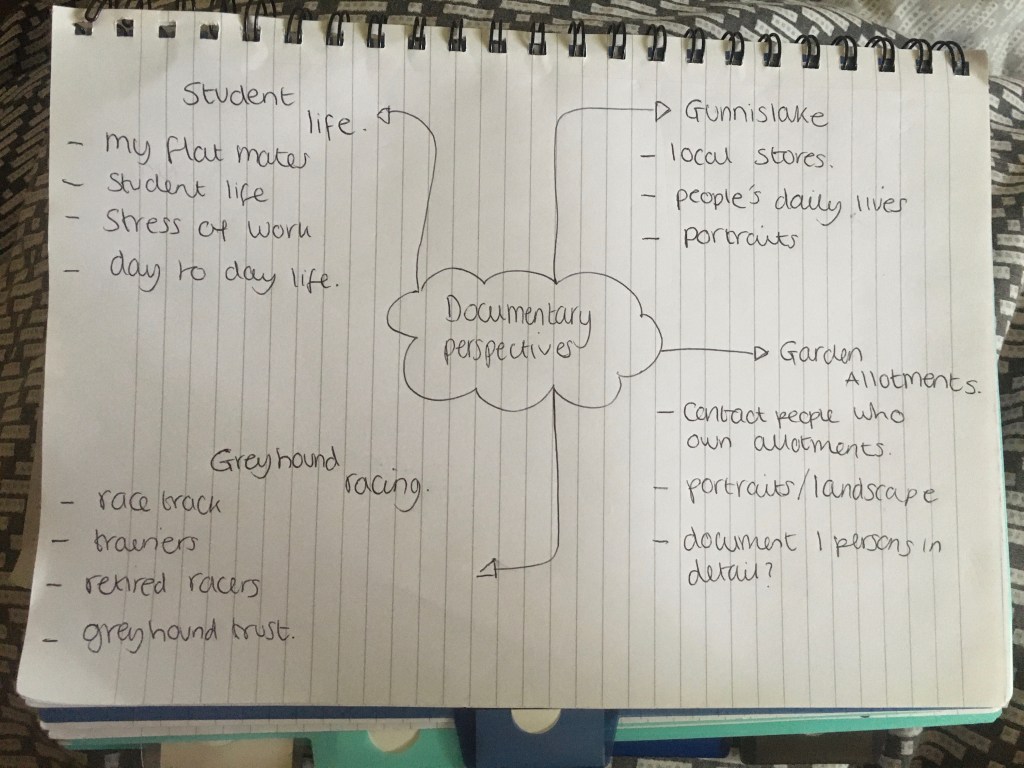 Student
life.
- my flat mates
- Student life
- Stress of work
- day to day life.
Gunnislake
- local stores.
- people's daily lives
- portraits
Documentary
perspectives
Garden
Allotments.
- Contact people who
own allotments.
- portraits/landscape
- document 1 persons in
detail?
Greyhound
racing.
- race track
- trainers
- retired racers
- greyhound trust.